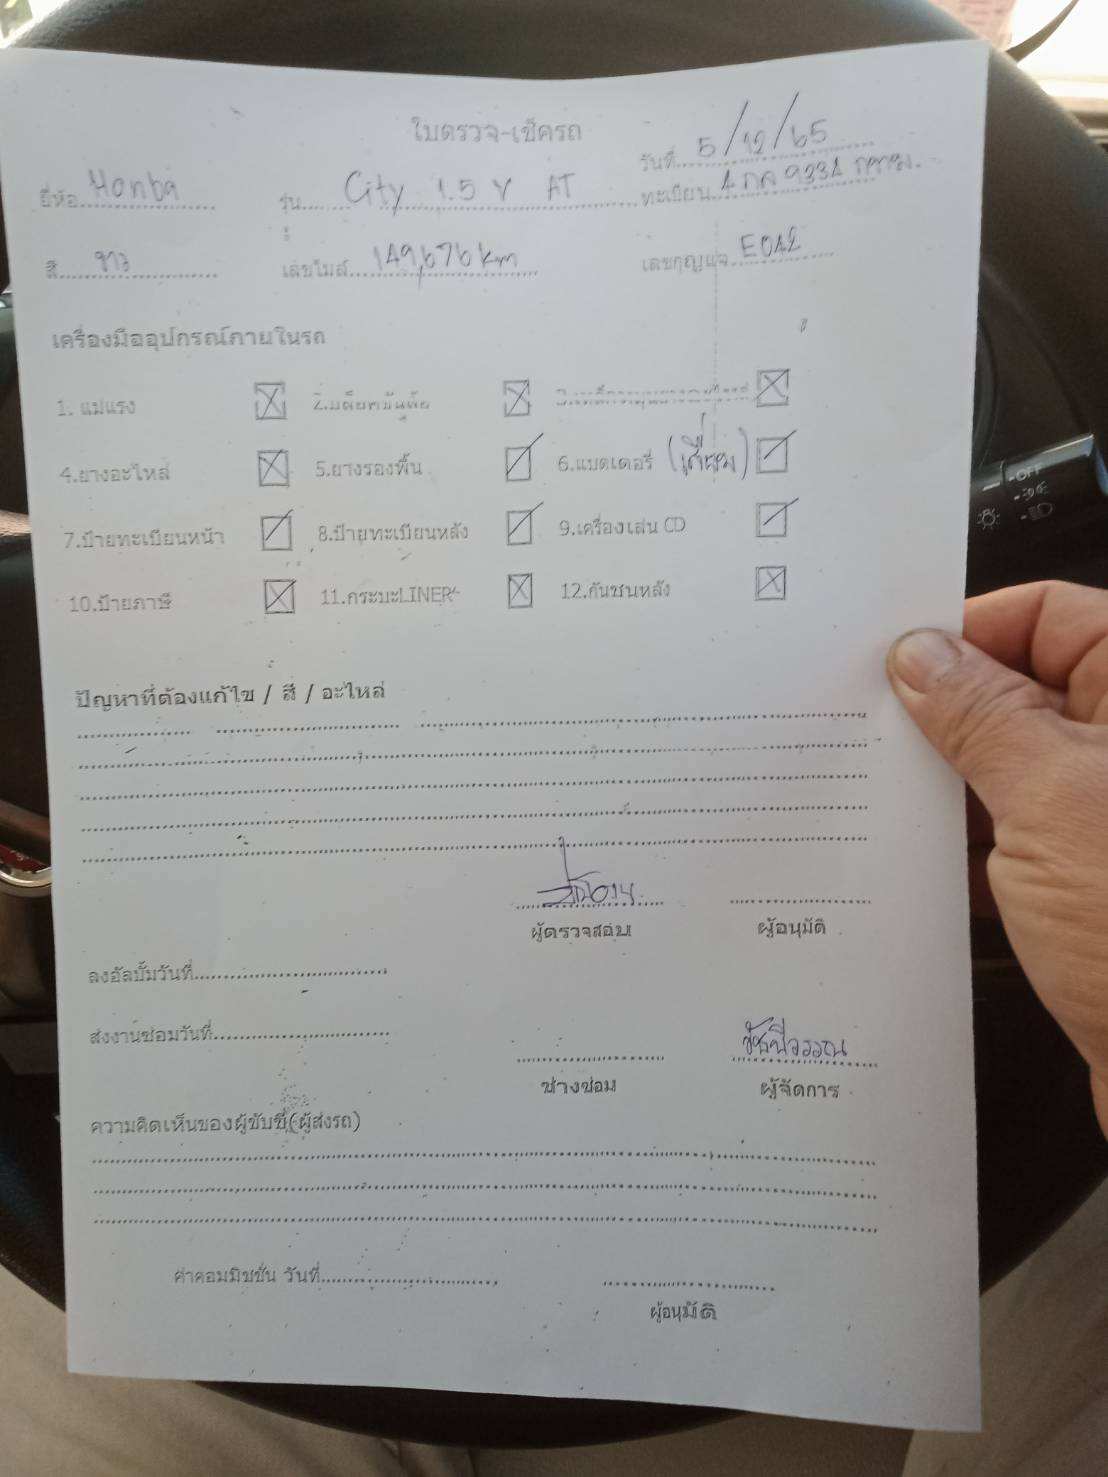 ใบตรวจ-เช็ครถ
วันที่ 5/12/65
ยี่ห้อ Honda รุ่น City 1.5 V AT ทะเบียน 4 กล 9334 กทม.
สี ขาว เลขไมล์ 149,676 km เลขกุญแจ E042
เครื่องมืออุปกรณ์ภายในรถ
1. แม่แรง 2.บล็อคขันล้อ
4.ยางอะไหล่ 5.ยางรองพื้น 6.แบตเตอรี่ (เสื่อม)
7.ป้ายทะเบียนหน้า 8.ป้ายทะเบียนหลัง 9.เครื่องเล่น CD
10.ป้ายภาษี 11.กระบะLINER 12.กันชนหลัง
ปัญหาที่ต้องแก้ไข / สี / อะไหล่
ผู้ตรวจสอบ ผู้อนุมัติ
ลงอัลบั้มวันที่
ส่งงานซ่อมวันที่
ช่างซ่อม ผู้จัดการ
ความคิดเห็นของผู้ขับขี่(ผู้ส่งรถ)
ค่าคอมมิชชั่น วันที่
ผู้อนุมัติ
OFF